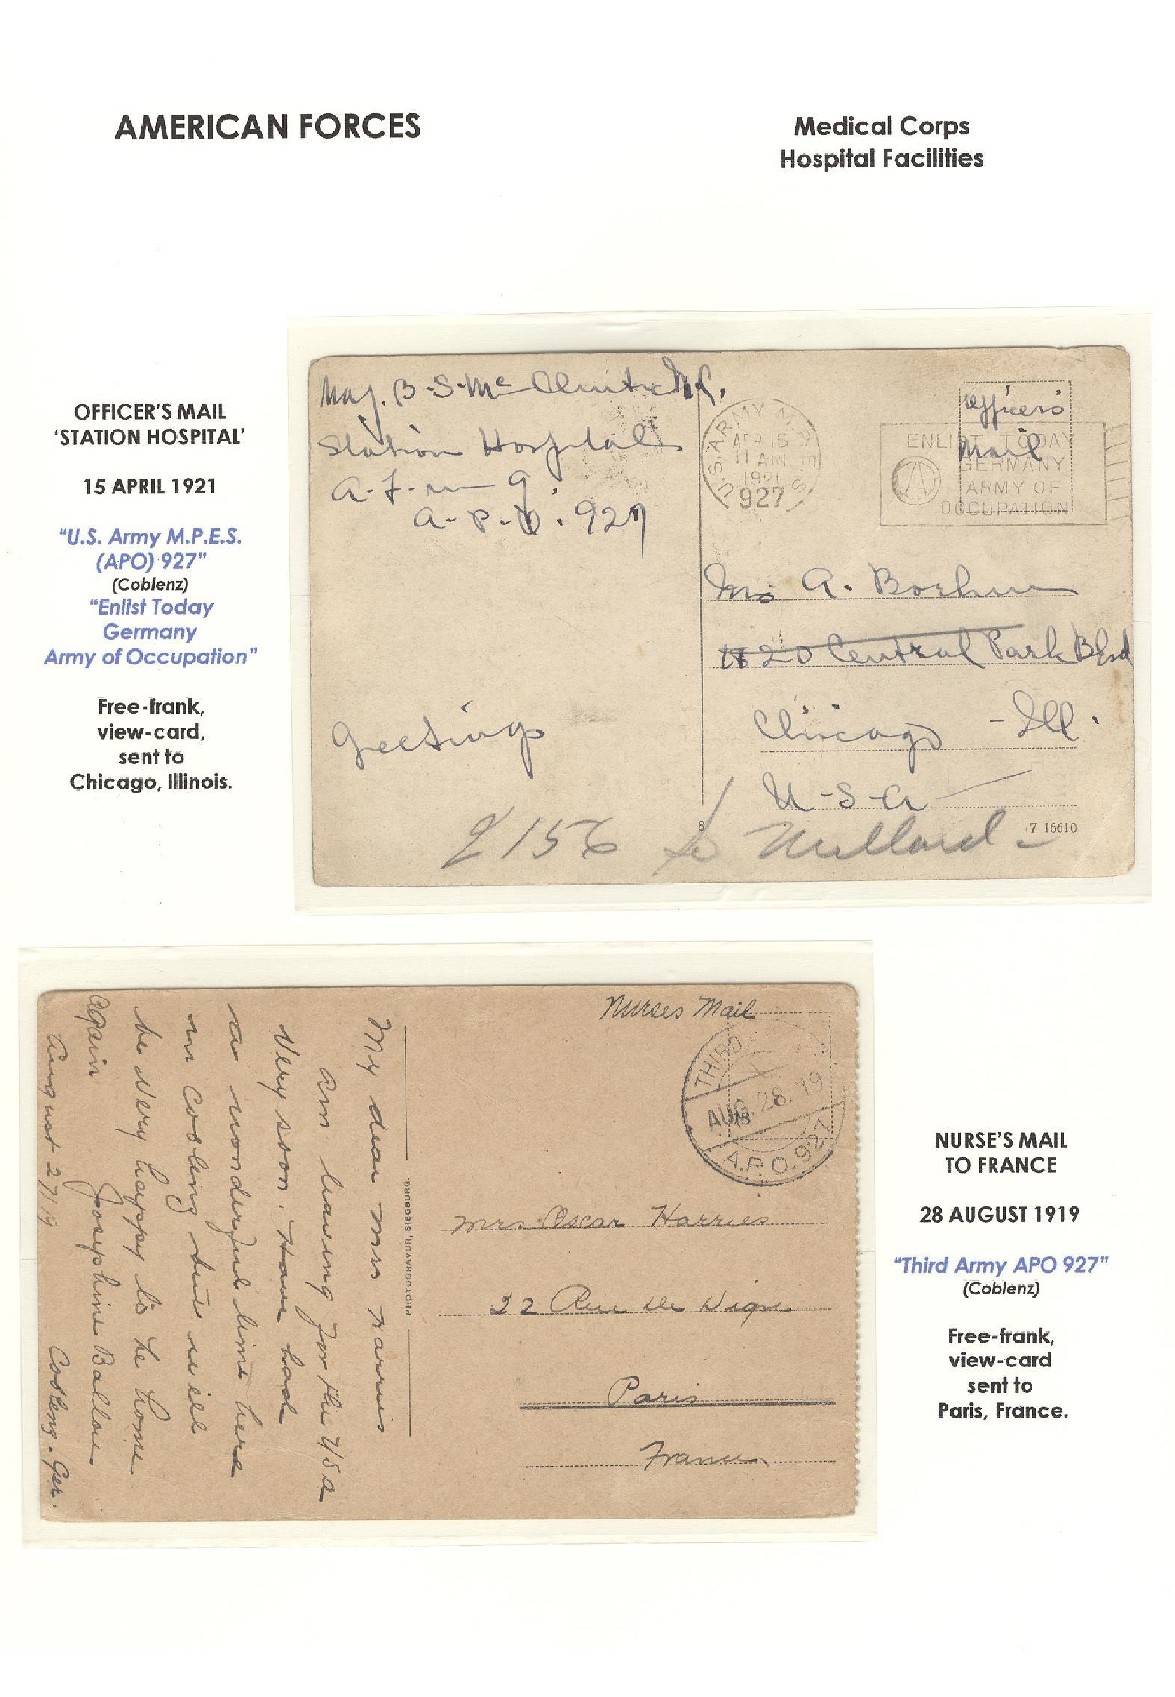 AMERICAN FORCES
Medical Corps
Hospital Facilities
OFFICER'S MAIL
'STATION HOSPITAL'
15 APRIL 1921
"U.S. Army M.P.E.S.
(APO) 927"
(Coblenz)
"Enlist Today
Germany
Army of Occupation"
Free-frank,
view-card,
sent to
Chicago, Illinois.
Maj. B. S. Mc
Station Hospital
A. F. in G
A. P. O. 927
Greetings
U.S. ARMY M.P.
APR 15
11 AM
1921
927
Officers
Mail
ENLIST TODAY
GERMANY
ARMY OF
OCCUPATION
A. Boehm
Central Park Blvd
Chicago - Ill.
U-S-A
2156 So Millard -
8
7 15610
My dear Mrs Harries
Am leaving for the USA
Very soon. Have had
a wonderful time here
in Cobleng but will
be very happy to be home
again Josephine Ballou
August 27/19 Cobleng. Ger.
PHOTOGRAVUR, SIEGBURG.
Nurses Mail
THIRD
AUG. 28. 19
A.P.O. 927
Mrs Oscar Harries
22 Rue de
Paris
France
NURSE'S MAIL
TO FRANCE
28 AUGUST 1919
"Third Army APO 927"
(Coblenz)
Free-frank,
view-card
sent to
Paris, France.